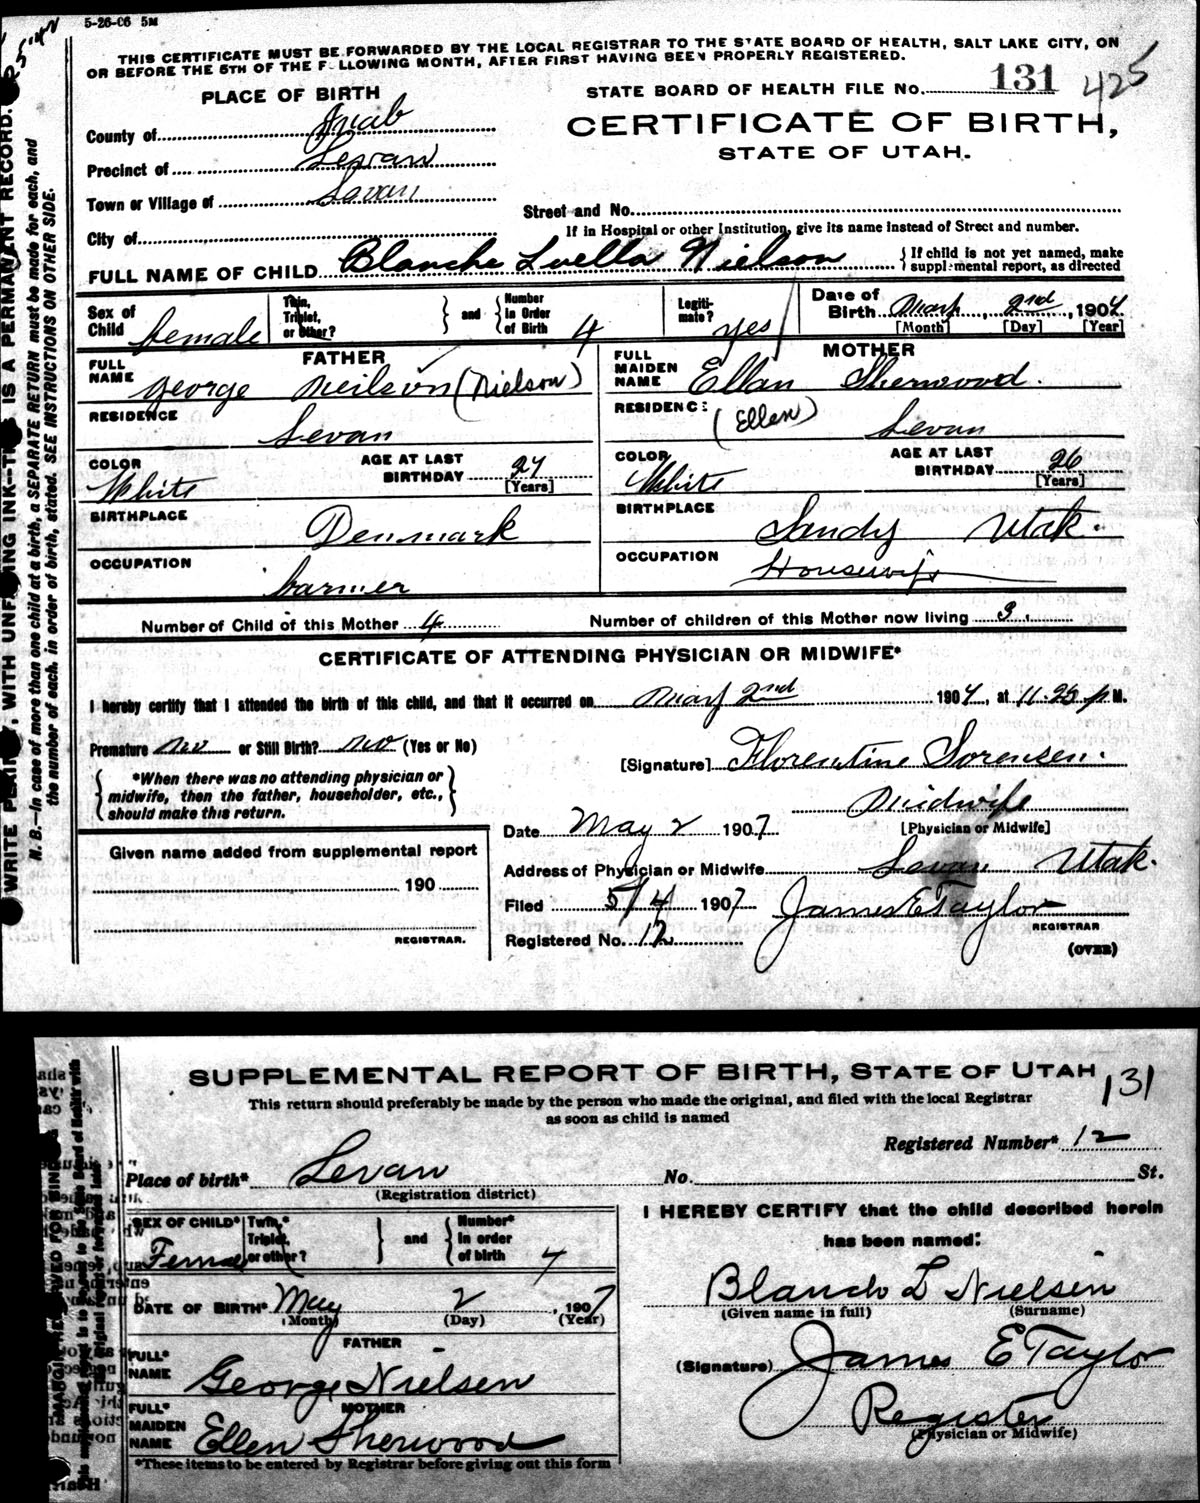 5-26-06 5M
THIS CERTIFICATE MUST BE FORWARDED BY THE LOCAL REGISTRAR TO THE STATE BOARD OF HEALTH, SALT LAKE CITY, ON
OR BEFORE THE 5TH OF THE F LLOWING MONTH, AFTER FIRST HAVING BEEN PROPERLY REGISTERED.
PLACE OF BIRTH
STATE BOARD OF HEALTH FILE No. 131 425
County of Juab
CERTIFICATE OF BIRTH,
STATE OF UTAH.
Precinct of Levan
Town or Village of Levan
Street and No.
If in Hospital or other Institution, give its name instead of Street and number.
City of
FULL NAME OF CHILD Blanche Luella Nielson { If child is not yet named, make
supplemental report, as directed
Sex of Child female
Twin, Triplet, or Other? } and { Number in Order of Birth 4
Legiti-mate? yes
Date of Birth May 2nd, 1907
[Month] [Day] [Year]
FATHER
FULL NAME George Neilson (Nielson)
RESIDENCE Levan
COLOR White
AGE AT LAST BIRTHDAY 27 [Years]
BIRTHPLACE Denmark
OCCUPATION farmer
MOTHER
FULL MAIDEN NAME Ellan Sherwood.
RESIDENCE (Ellen) Levan
COLOR White
AGE AT LAST BIRTHDAY 26 [Years]
BIRTHPLACE Sandy Utah.
OCCUPATION Housewife
Number of Child of this Mother 4 Number of children of this Mother now living 3.
CERTIFICATE OF ATTENDING PHYSICIAN OR MIDWIFE*
I hereby certify that I attended the birth of this child, and that it occurred on May 2nd 1907, at 11.25 p M.
Premature no or Still Birth? no (Yes or No)
[Signature] Florentine Sorensen.
{ *When there was no attending physician or
midwife, then the father, householder, etc.,
should make this return. }
Midwife
[Physician or Midwife]
Date May 2 1907
Given name added from supplemental report
190
REGISTRAR.
Address of Physician or Midwife Levan Utah.
Filed 5/4 1907 James E Taylor
REGISTRAR
Registered No. 12
(OVER)
WITH UNF ING INK—T IS A PERMANENT RECORD.
N. B.—In case of more than one child at a birth, a SEPARATE RETURN must be made for each, and
the number of each, in order of birth, stated. SEE INSTRUCTIONS ON OTHER SIDE.
SUPPLEMENTAL REPORT OF BIRTH, STATE OF UTAH 131
This return should preferably be made by the person who made the original, and filed with the local Registrar
as soon as child is named
Registered Number* 12
Place of birth* Levan No. St.
(Registration district)
SEX OF CHILD* Female
Twin,* Triplet, or other? } and { Number* in order of birth 4
DATE OF BIRTH* May 2, 1907
(Month) (Day) (Year)
FATHER
FULL* NAME George Nielsen
MOTHER
FULL* MAIDEN NAME Ellen Sherwood
*These items to be entered by Registrar before giving out this form
I HEREBY CERTIFY that the child described herein
has been named:
Blanch L Nielsen
(Given name in full) (Surname)
(Signature) James E Taylor
Register
(Physician or Midwife)